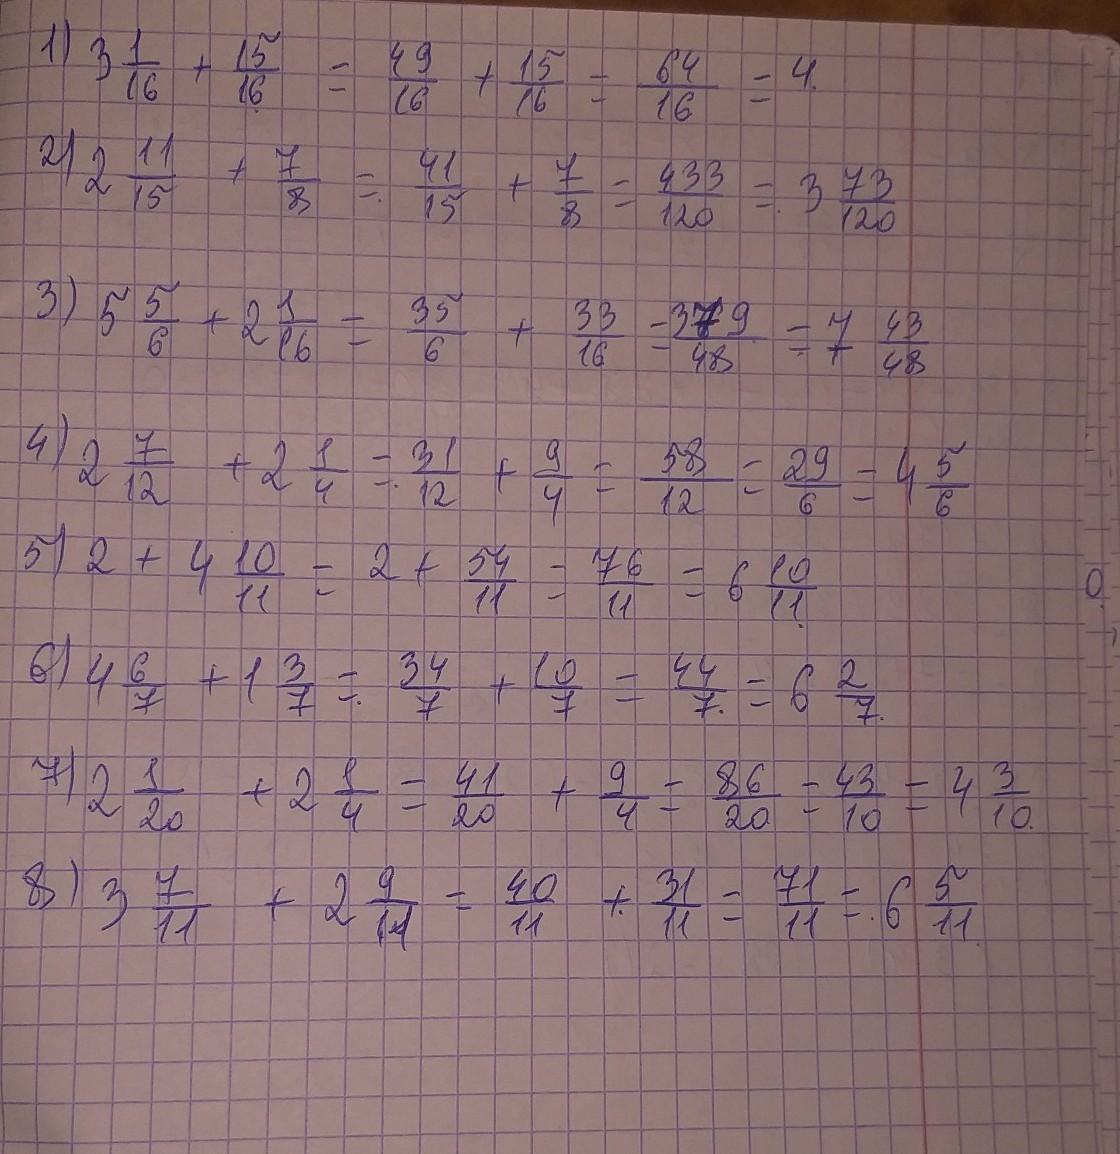 1) 3 1/16 + 15/16 = 49/16 + 15/16 = 64/16 = 4.
2) 2 11/15 + 7/8 = 41/15 + 7/8 = 433/120 = 3 73/120
3) 5 5/6 + 2 1/16 = 35/6 + 33/16 = 379/48 = 7 43/48
4) 2 7/12 + 2 1/4 = 31/12 + 9/4 = 58/12 = 29/6 = 4 5/6
5) 2 + 4 10/11 = 2 + 54/11 = 76/11 = 6 10/11.
6) 4 6/7 + 1 3/7 = 34/7 + 10/7 = 44/7 = 6 2/7.
7) 2 1/20 + 2 1/4 = 41/20 + 9/4 = 86/20 = 43/10 = 4 3/10.
8) 3 7/11 + 2 9/11 = 40/11 + 31/11 = 71/11 = 6 5/11.